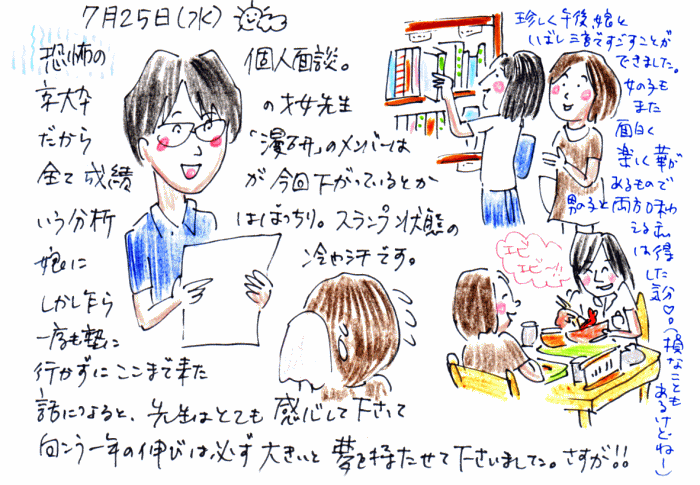 7月25日(水)
恐怖の 個人面談。
京大卒 の才女先生
だから 「漫研」のメンバーは
全て成績 が今回下がっているとか
いう分析 はばっちり。スランプ状態の
娘に 冷や汗です。
しかし乍ら
一度も塾に
行かずにここまで来た
話になると、先生はとても感心して下さって
向こう一年の伸びは必ず大きいと夢を持たせて下さいました。さすが!!
珍しく午後娘と
いばし三宮ですごすことが
できました。
女の子も
また
面白く
楽しく華が
あるもので
男の子と両方味わ
える私
は得
した気分♡。(損なことも
あるけどねー)
エビ
エビ〜!!